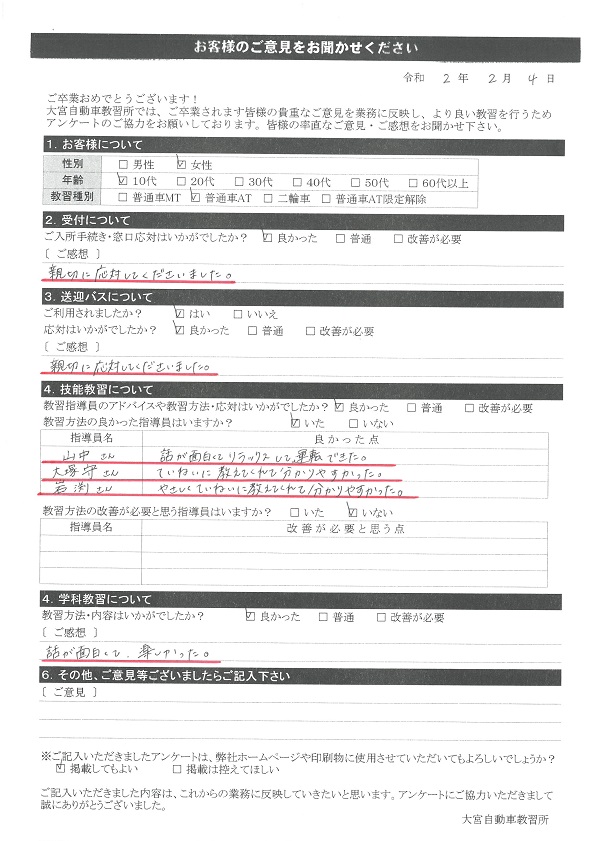 お客様のご意見をお聞かせください
令和 2 年 2 月 4 日
ご卒業おめでとうございます!
大宮自動車教習所では、ご卒業されます皆様の貴重なご意見を業務に反映し、より良い教習を行うため
アンケートのご協力をお願いしております。皆様の率直なご意見・ご感想をお聞かせ下さい。
1. お客様について
性別 □ 男性 ☑ 女性
年齢 ☑ 10代 □ 20代 □ 30代 □ 40代 □ 50代 □ 60代以上
教習種別 □ 普通車MT ☑ 普通車AT □ 二輪車 □ 普通車AT限定解除
2. 受付について
ご入所手続き・窓口応対はいかがでしたか? ☑ 良かった □ 普通 □ 改善が必要
〔 ご感想 〕
親切に応対してくださいました。
3. 送迎バスについて
ご利用されましたか? ☑ はい □ いいえ
応対はいかがでしたか? ☑ 良かった □ 普通 □ 改善が必要
〔 ご感想 〕
親切に応対してくださいました。
4. 技能教習について
教習指導員のアドバイスや教習方法・応対はいかがでしたか? ☑ 良かった □ 普通 □ 改善が必要
教習方法の良かった指導員はいますか? ☑ いた □ いない
指導員名 良かった点
山中 さん 話が面白くてリラックスして運転できた。
大塚守 さん ていねいに教えてくれて分かりやすかった。
岩渕 さん やさしくていねいに教えてくれて分かりやすかった。
教習方法の改善が必要と思う指導員はいますか? □ いた ☑ いない
指導員名 改善が必要と思う点
4. 学科教習について
教習方法・内容はいかがでしたか? ☑ 良かった □ 普通 □ 改善が必要
〔 ご感想 〕
話が面白くて、楽しかった。
6. その他、ご意見等ございましたらご記入下さい
〔 ご意見 〕
※ご記入いただきましたアンケートは、弊社ホームページや印刷物に使用させていただいてもよろしいでしょうか?
☑ 掲載してもよい □ 掲載は控えてほしい
ご記入いただきました内容は、これからの業務に反映していきたいと思います。アンケートにご協力いただきまして
誠にありがとうございました。
大宮自動車教習所